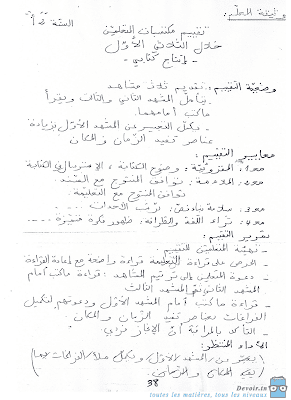 وثيقة المعلّم:
السنة 2
تقييم مكتسبات المتعلمين
خلال الثلاثي الأوّل
- إنتاج كتابي -
وضعيّة التقييم: تقديم ثلاث مشاهد
- يتأمّل المشهد الثاني والثالث ويقرأ
ما كتب أمامهما.
- يكمل التعبير عن المشهد الأوّل بزيادة
عناصر تفيد الزمان والمكان
معايير التقييم:
مع1: المقروئيّة: وضوح الكتابة، في الكتابة
مع2: الملاءمة: توافق المنتوج مع السند.
توافق المنتوج مع التعليمة
مع3: سلامة بناء النص: ترتيب الأحداث...
مع4: ثراء اللّغة والطرافة: ظهور فكرة متميّزة...
تمرير التقييم:
- تهيئة المتعلّمين للتقييم
- الحرص على قراءة التعليمة قراءة واضحة مع إعادة القراءة
- دعوة المتعلمين إلى ترقيم المشاهد: قراءة ما كتب أمام
المشهد الثاني ثم المشهد الثالث
- قراءة ما كتب أمام المشهد الأوّل ودعوتهم لتكميل
الفراغات بعناصر تفيد الزمان والمكان.
- التأكّد بالمراقبة أنّ الإنجاز فردي.
الأداء المنتظر:
(يعبّر عن المشهد الأوّل ويكمل ملأ الفراغات بما)
(يفيد المكان والزمان.)
38
Devoir.tn
toutes les matières, tous les niveaux